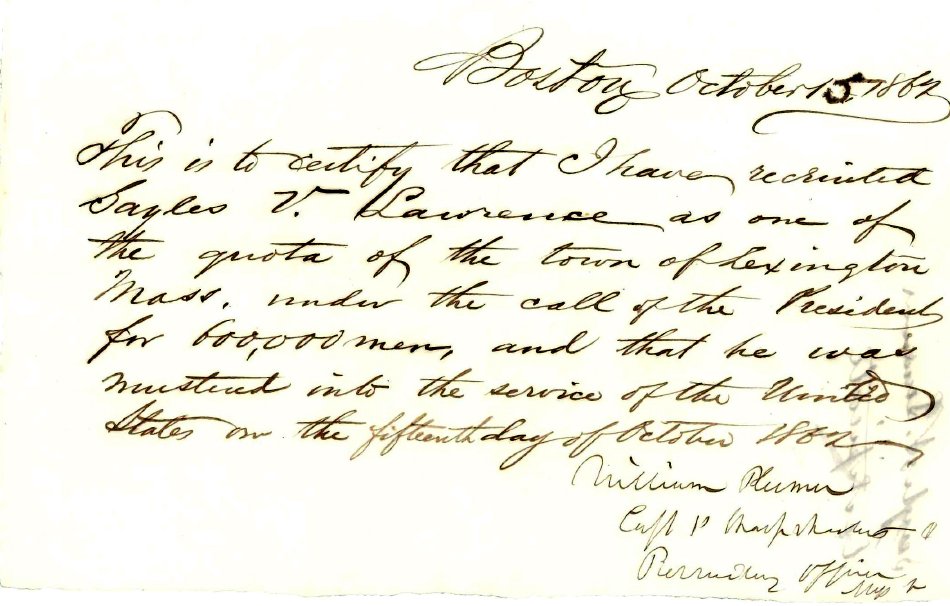 Boston October 15, 1862
This is to certify that I have recruited
Sayles V. Lawrence as one of
the quota of the town of Lexington
Mass. under the call of the President
for 600,000 men, and that he was
mustered into the service of the United
States on the fifteenth day of October 1862
William Plumer
Capt 1st Sharpshooters
Recruiting Officer